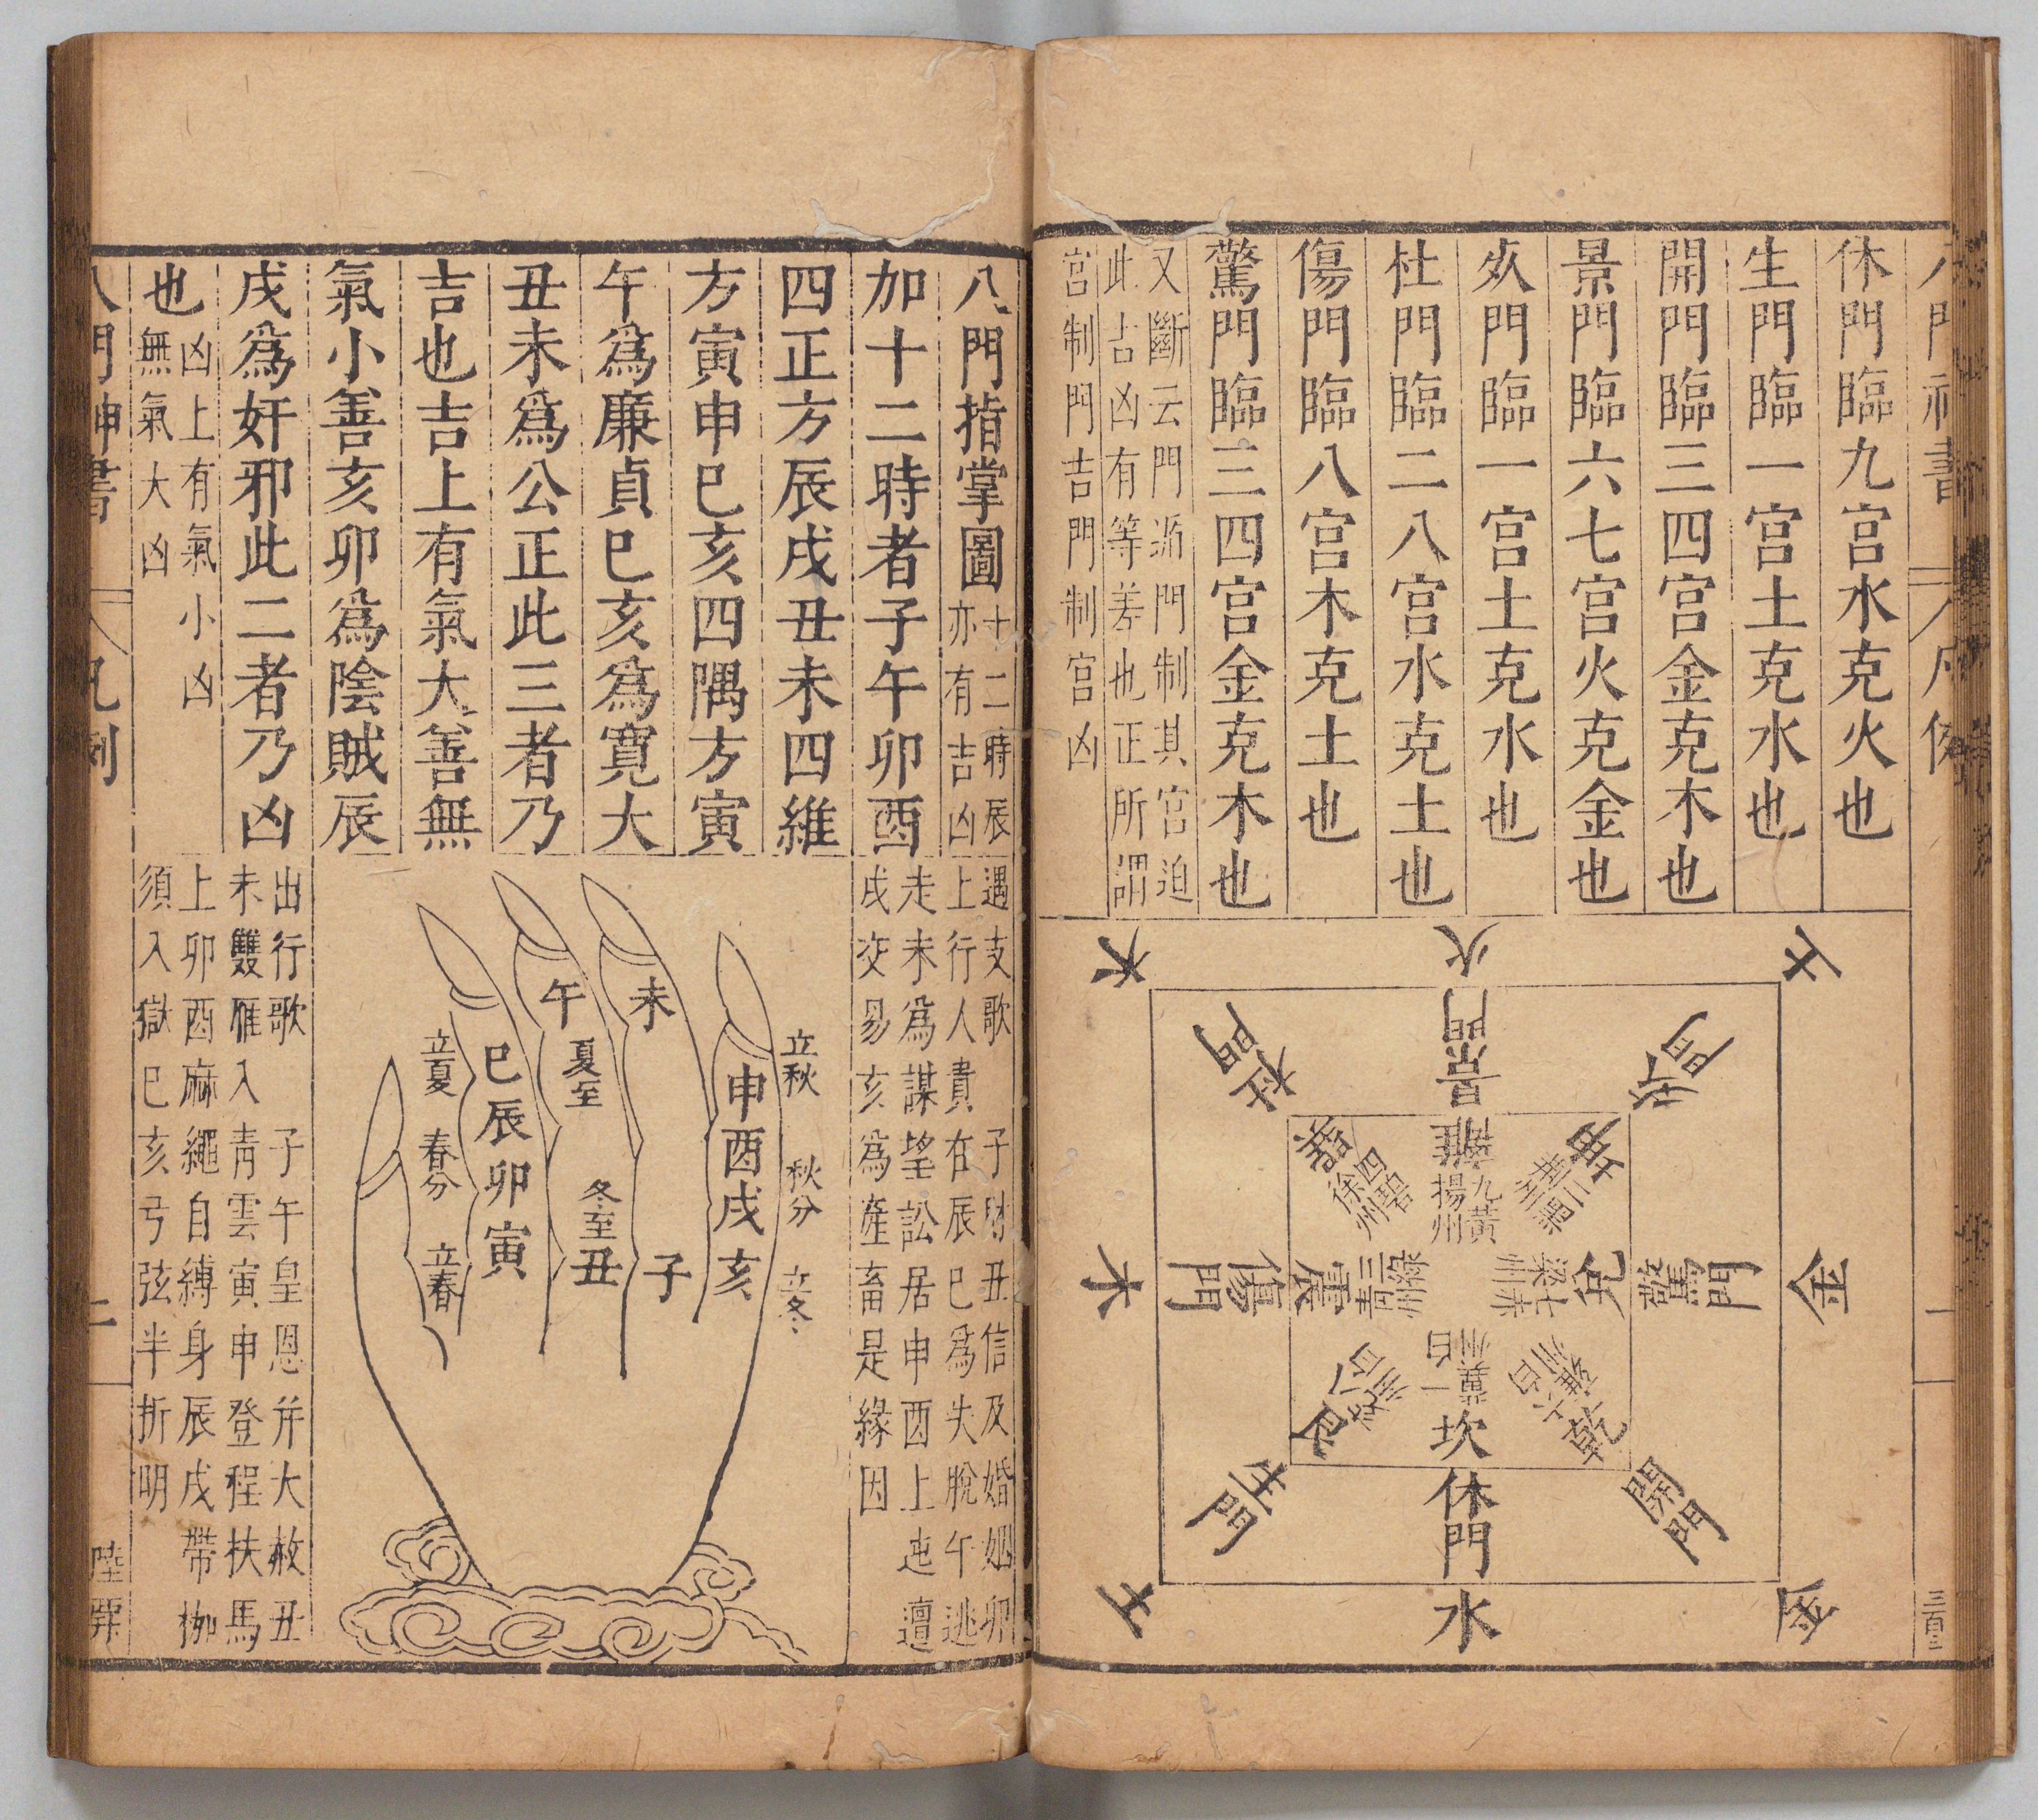 休門臨九宮水克火也
生門臨一宮土克水也
開門臨三四宮金克木也
景門臨六七宮火克金也
死門臨一宮土克水也
杜門臨二八宮水克土也
傷門臨八宮木克土也
驚門臨三四宮金克木也
又斷云門迫門制其宮迫
此吉凶有等差也正所謂
宮制門吉門制宮凶
土
火
木
死門
景門
杜門
坤
離
九黃
揚州
四碧
徐州
金
驚門
兌
三綠
震
傷門
木
乾
坎
艮
開門
休門
生門
金
水
土
三百三
八門指掌圖
十二時辰
亦有吉凶
加十二時者子午卯酉
四正方辰戌丑未四維
方寅申巳亥四隅方寅
午爲廉貞巳亥爲寬大
丑未爲公正此三者乃
吉也吉上有氣大善無
氣小善亥卯爲陰賊辰
戌爲奸邪此二者乃凶
也
凶上有氣小凶
無氣大凶
遇支歌
子財丑信及婚姻卯
上行人貴在辰巳爲失脫午逃
走未爲謀望訟居申酉上迍邅
戌交易亥爲產畜是緣因
立秋
秋分
立冬
申酉戌亥
未
子
午
夏至
冬至
丑
巳辰卯寅
立夏
春分
立春
出行歌
子午皇恩并大赦丑
未雙雁入青雲寅申登程扶馬
上卯酉麻繩自縛身辰戌帶枷
須入獄巳亥弓弦半折明
八門神書
凡例
二